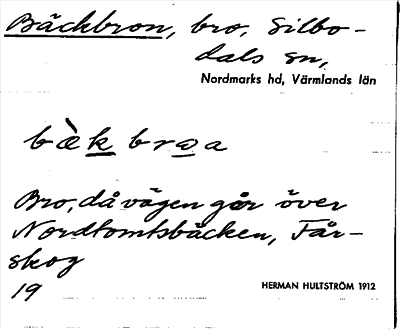 Bäckbron, bro, Silbo-
dals sn,
Nordmarks hd, Värmlands län
bæ̀k brωa
Bro, då vägen går över
Nordtomtsbäcken, Får-
skog
19
HERMAN HULTSTRÖM 1912